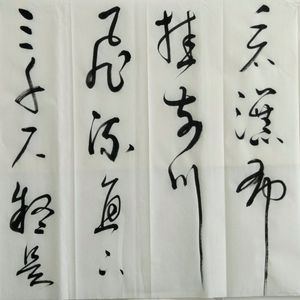 看瀑布
挂前川
飛流直下
三千尺疑是